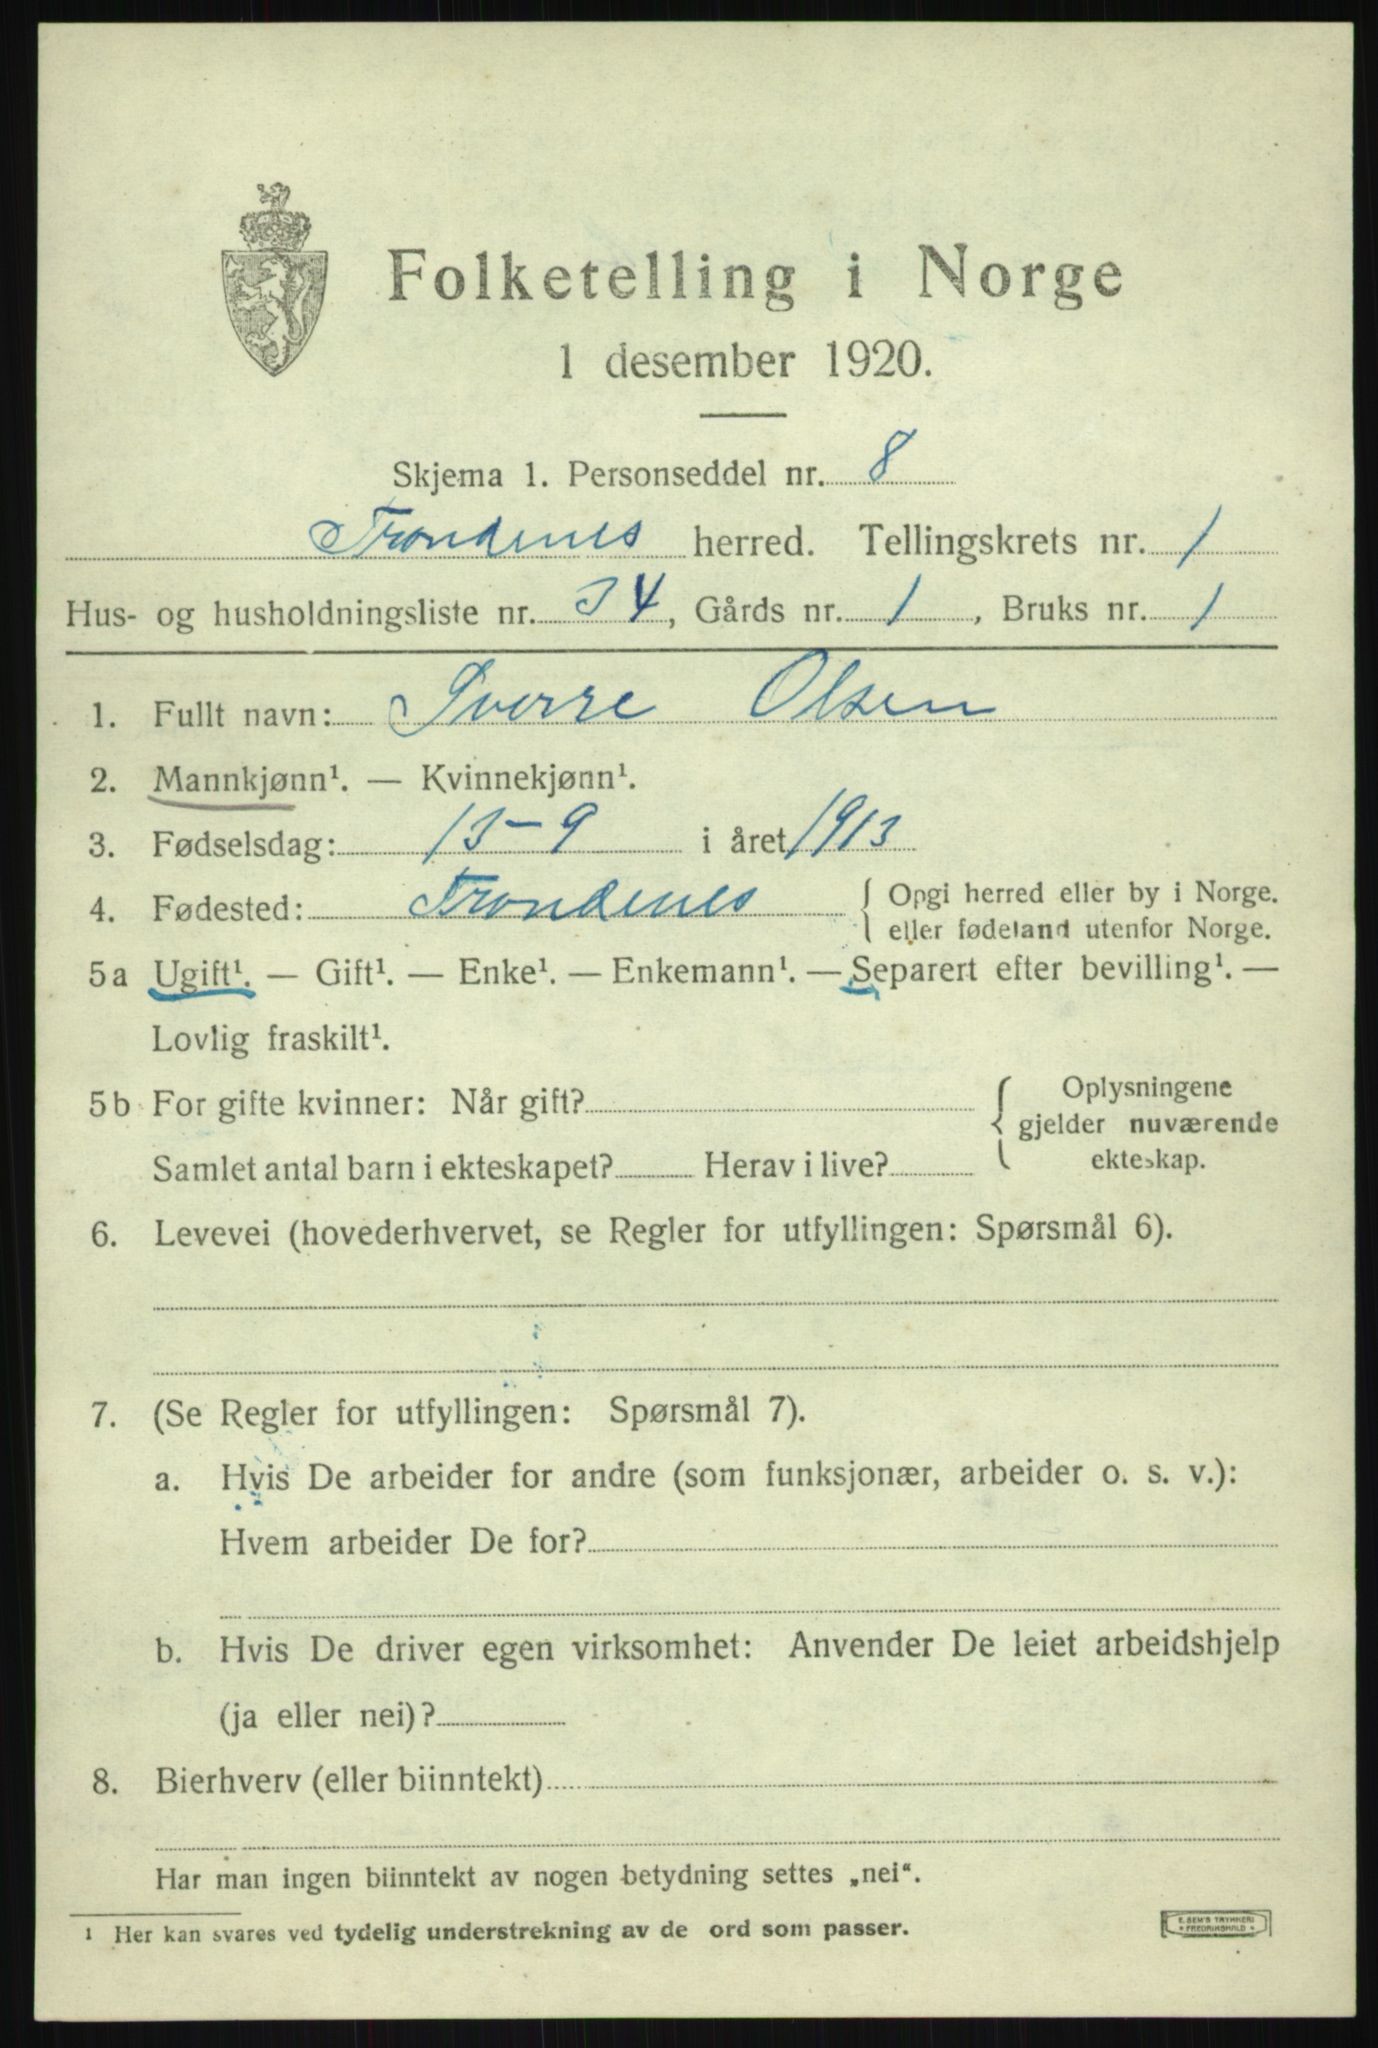 Folketelling i Norge
1 desember 1920.
Skjema 1. Personseddel nr. 8
Trondenes herred. Tellingskrets nr. 1
Hus- og husholdningsliste nr. 34, Gårds nr. 1, Bruks nr. 1
1. Fullt navn: Sverre Olsen
2. Mannkjønn¹. — Kvinnekjønn¹.
3. Fødselsdag: 13-9 i året 1913
4. Fødested: Trondenes { Opgi herred eller by i Norge.
eller fødeland utenfor Norge.
5a Ugift¹. — Gift¹. — Enke¹. — Enkemann¹. — Separert efter bevilling¹. —
Lovlig fraskilt¹.
5b For gifte kvinner: Når gift? { Oplysningene
gjelder nuværende
Samlet antal barn i ekteskapet? Herav i live? ekteskap.
6. Levevei (hovederhvervet, se Regler for utfyllingen: Spørsmål 6).
7. (Se Regler for utfyllingen: Spørsmål 7).
a. Hvis De arbeider for andre (som funksjonær, arbeider o. s. v.):
Hvem arbeider De for?
b. Hvis De driver egen virksomhet: Anvender De leiet arbeidshjelp
(ja eller nei)?
8. Bierhverv (eller biinntekt)
Har man ingen biinntekt av nogen betydning settes „nei“.
¹ Her kan svares ved tydelig understrekning av de ord som passer.
E. SEM'S TRYKKERI
* FREDRIKSHALD *